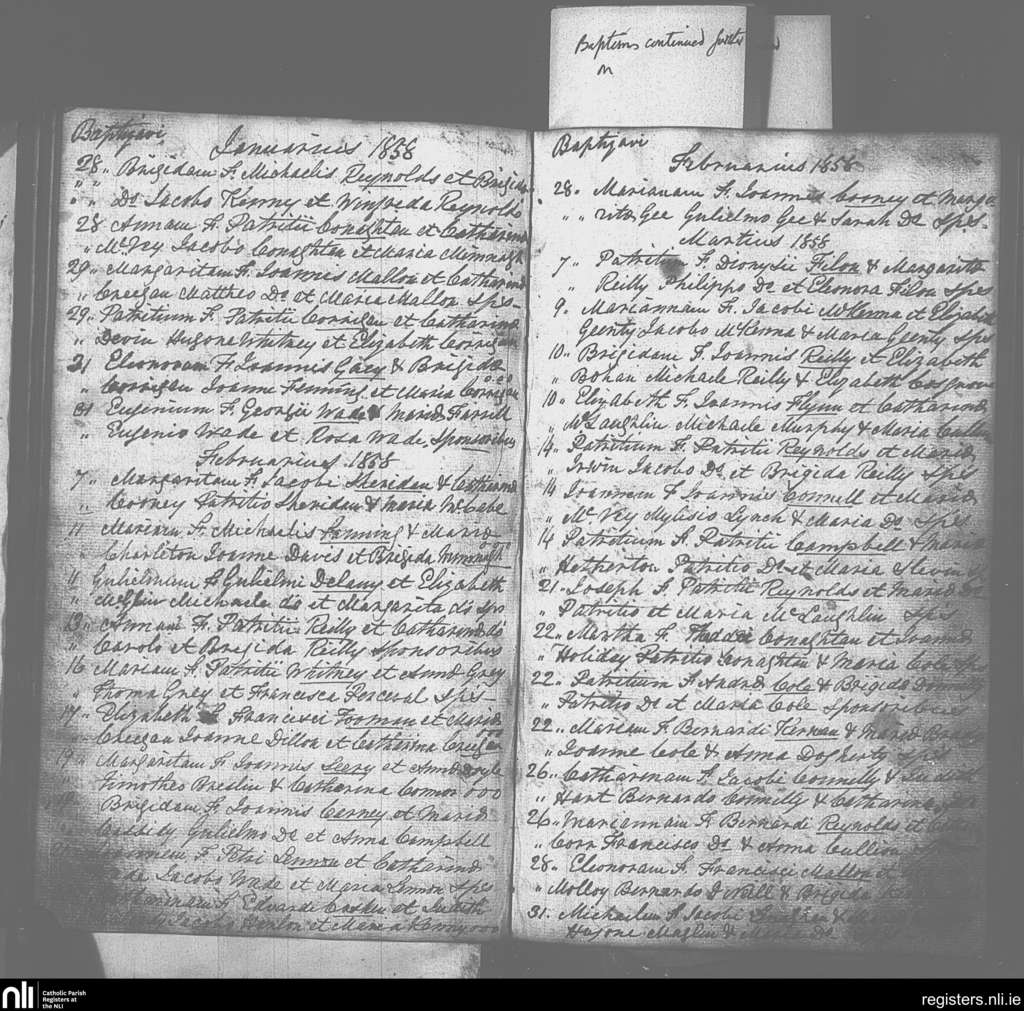 Baptisms continued
on
Baptizavi
Januarius 1858
28 „ Brigidam F. Michaelis Reynolds et Brigida
„ „ Do Jacobo Kenny et Winifreda Reynolds
28 Annam F. Patritii Conaghten et Catharina
„ McVey Jacobo Conaghten et Maria Mimnagh
29 „ Margaritam F. Joannis Mallon et Catharina
„ Creegan Mattheo Do et Maria Mallon Sps
29 „ Patritium F. Patritii Corrigan et Catharina
„ Devin Hugone Whitney et Elizabeth Corrigan
31 Eleonoram F. Joannis Gacy & Brigida
„ Corrigan Joanne Fleming et Maria Corrigan
31 Eugenium F. Georgii Wade & Maria Farrell
„ Eugenio Wade et Rosa Wade Sponsoribus
Februarius 1858
7 „ Margaritam F. Jacobi Sheridan & Catharina
„ Cooney Patritio Sheridan & Maria McCabe
11 Mariam F. Michaelis Fanning & Maria
„ Charleton Joanne Davis et Brigida Mimnagh
11 Gulielmum F. Gulielmi Delany et Elizabeth
„ McGlin Michaele do et Margarita do Sps
13 „ Annam F. Patritii Reilly et Catharina do
„ Carolo et Brigida Reilly Sponsoribus
16 Mariam F. Patritii Whitney et Anna Grey
„ Thoma Grey et Francisca Perceval Sps
17 „ Elizabeth F. Francisci Fooman et Maria
„ Creegan Joanne Dillon et Catharina Creegan
19 „ Margaritam F. Joannis Leery et Anna Doyle
Timotheo Breslin & Catharina Connor 000
Brigidam F. Joannis Kerney et Maria
Cassidy Gulielmo Do et Anna Campbell
F. Petri Lennon et Catharina
Wade Jacobo Wade et Maria Lennon Sps
F. Edwardi Caskin et Judith
Jacobo Henlon et Maria Kenny 000
Baptizavi
Februarius 1858
28 „ Mariannam F. Joannis Cooney et Marga
„ „ rita Gee Gulielmo Gee & Sarah Do Sps.
Martius 1858
7 „ Patritium F. Dionysii Filon & Margarita
„ Reilly Philippo Do et Eleonora Filon Sps
9. Mariannam F. Jacobi McKenna et Elizabeth
Geenty Jacobo McKenna & Maria Geenty Sps
10 „ Brigidam F. Joannis Reilly et Elizabeth
„ Bohan Michaele Reilly & Elizabeth Cosgrove
10 „ Elizabeth F. Joannis Flynn et Catharina
„ McLaughlin Michaele Murphy & Maria
14 „ Patritium F. Patritii Reynolds et Maria
„ Irwin Jacobo Do et Brigida Reilly Sps
14 Joannem F. Joannis Connell et Maria
„ McVey Mylisio Lynch & Maria Do Sps
14 Patritium F. Patritii Campbell & Maria
„ Hetherton Patritio Do et Maria Slevin
21 „ Joseph F. Patritii Reynolds et Maria Do
„ Patritio et Maria McLaughlin Sps
22 „ Martha F. Thadaei Conaghten et Joanna
„ Holiday Patritio Conaghten & Maria Cole
22 „ Patritium F. Andrea Cole & Brigida
„ Patritio Do et Maria Cole Sponsoribus
22 „ Mariam F. Bernardi Kernan & Maria
„ Joanne Cole & Anna Dogherty
26 „ Catharinam F. Jacobi Connelly &
„ Hart Bernardo Connelly & Catharina
26 „ Mariannam F. Bernardi Reynolds et
„ Corr Francisco Do & Anna Cullion
28 „ Eleonoram F. Francisci Mallon et
„ Molloy Bernardo & Brigida
31 „ Michaelem F. Jacobi
Hugone Maglin & Do
nli Catholic Parish
Registers at
the NLI
registers.nli.ie